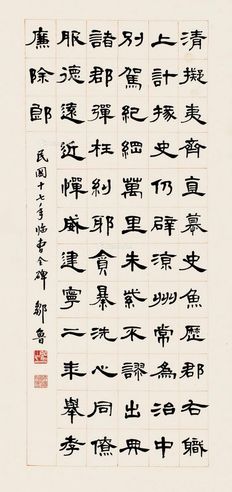 清擬夷齊直慕史魚歷郡右職
上計掾史仍辟涼州常為治中
別駕紀綱萬里朱紫不謬出典
諸郡彈枉糾耶貪暴洗心同僚
服德遠近憚威建寧二年舉孝
廉除郎
民國十七年臨曹全碑 鄒魯